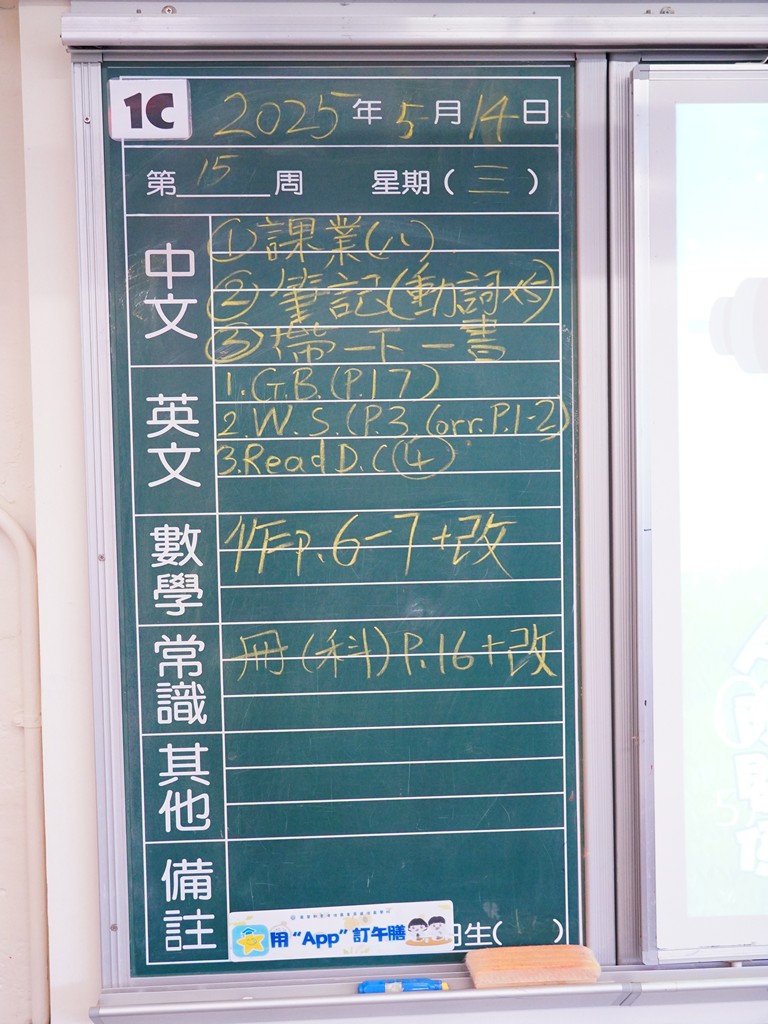 1C 2025年5月14日
第15周 星期(三)
中文
①課業(八)
②筆記(動詞×5)
③帶一下一書
英文
1.G.B.(P.17)
2.W.S.(P.3.Corr.P.1-2)
3.Read D.C④
數學
作P.6-7+改
常識
冊(科)P.16+改
其他
備註
用“App”訂午膳
生( )